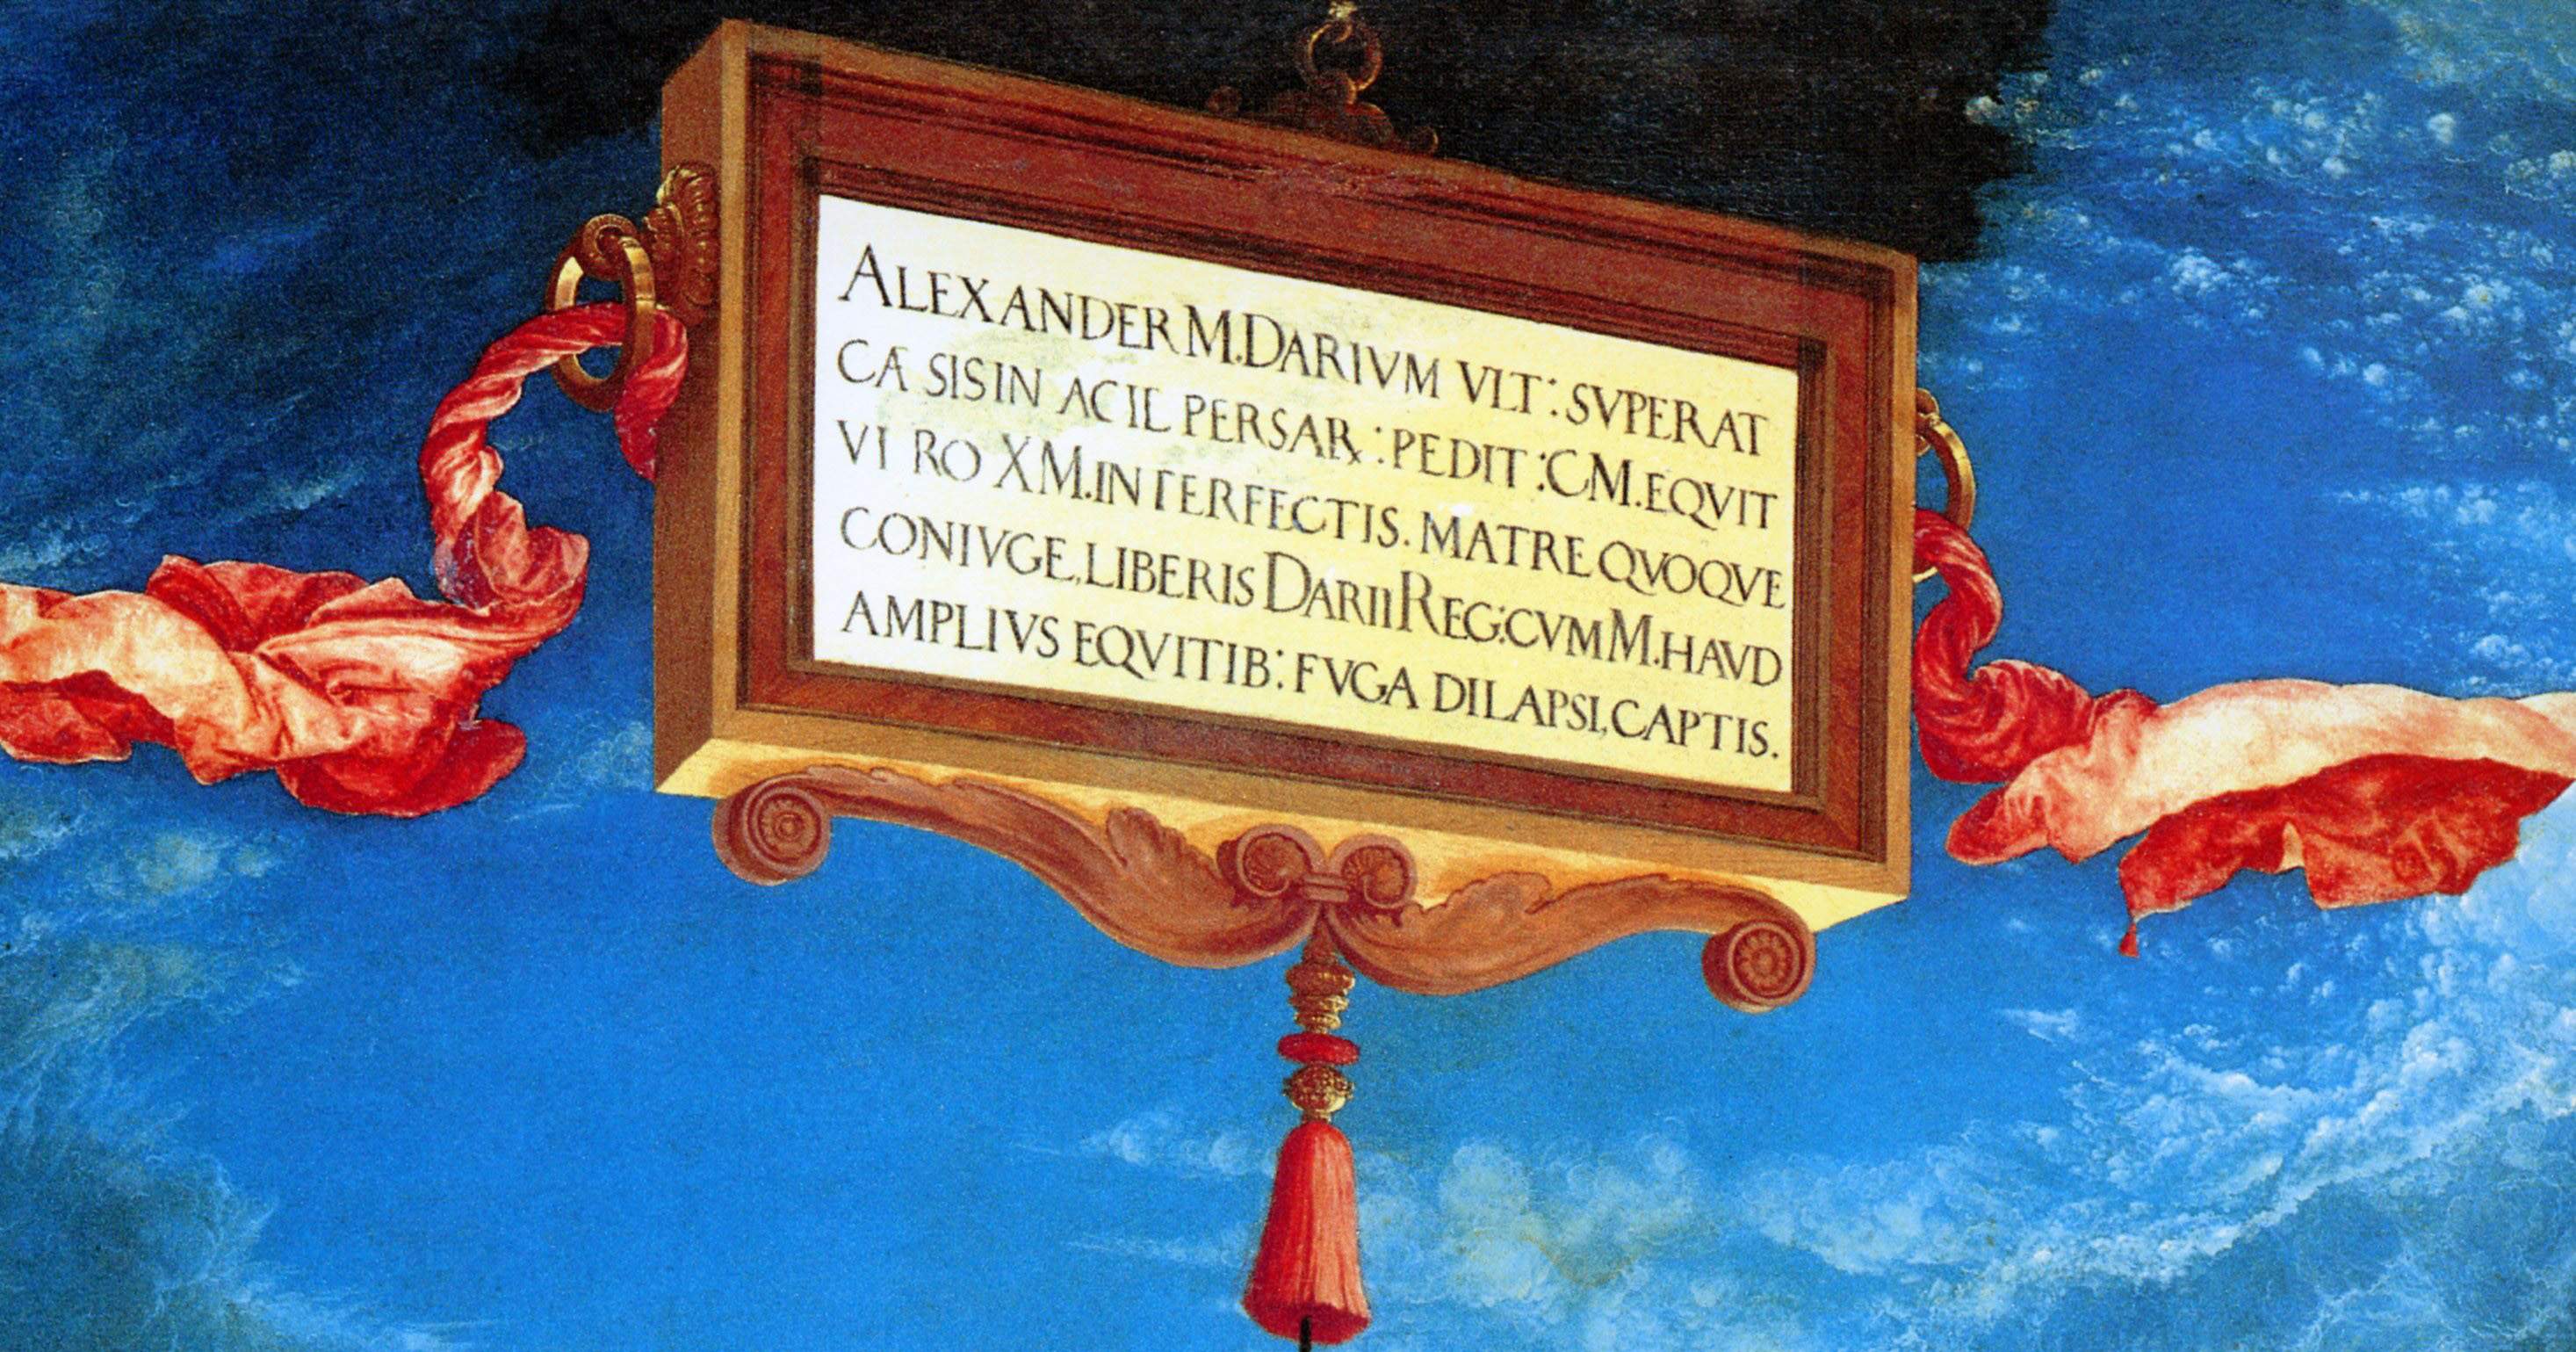 ALEXANDER M. DARIVM VLT: SVPERAT
CÆSIS IN ACIE PERSAR: PEDIT: CM. EQVIT
VERO XM. INTERFECTIS. MATRE QVOQVE
CONIVGE, LIBERIS DARII REG: CVM M. HAVD
AMPLIVS EQVITIB: FVGA DILAPSI, CAPTIS.